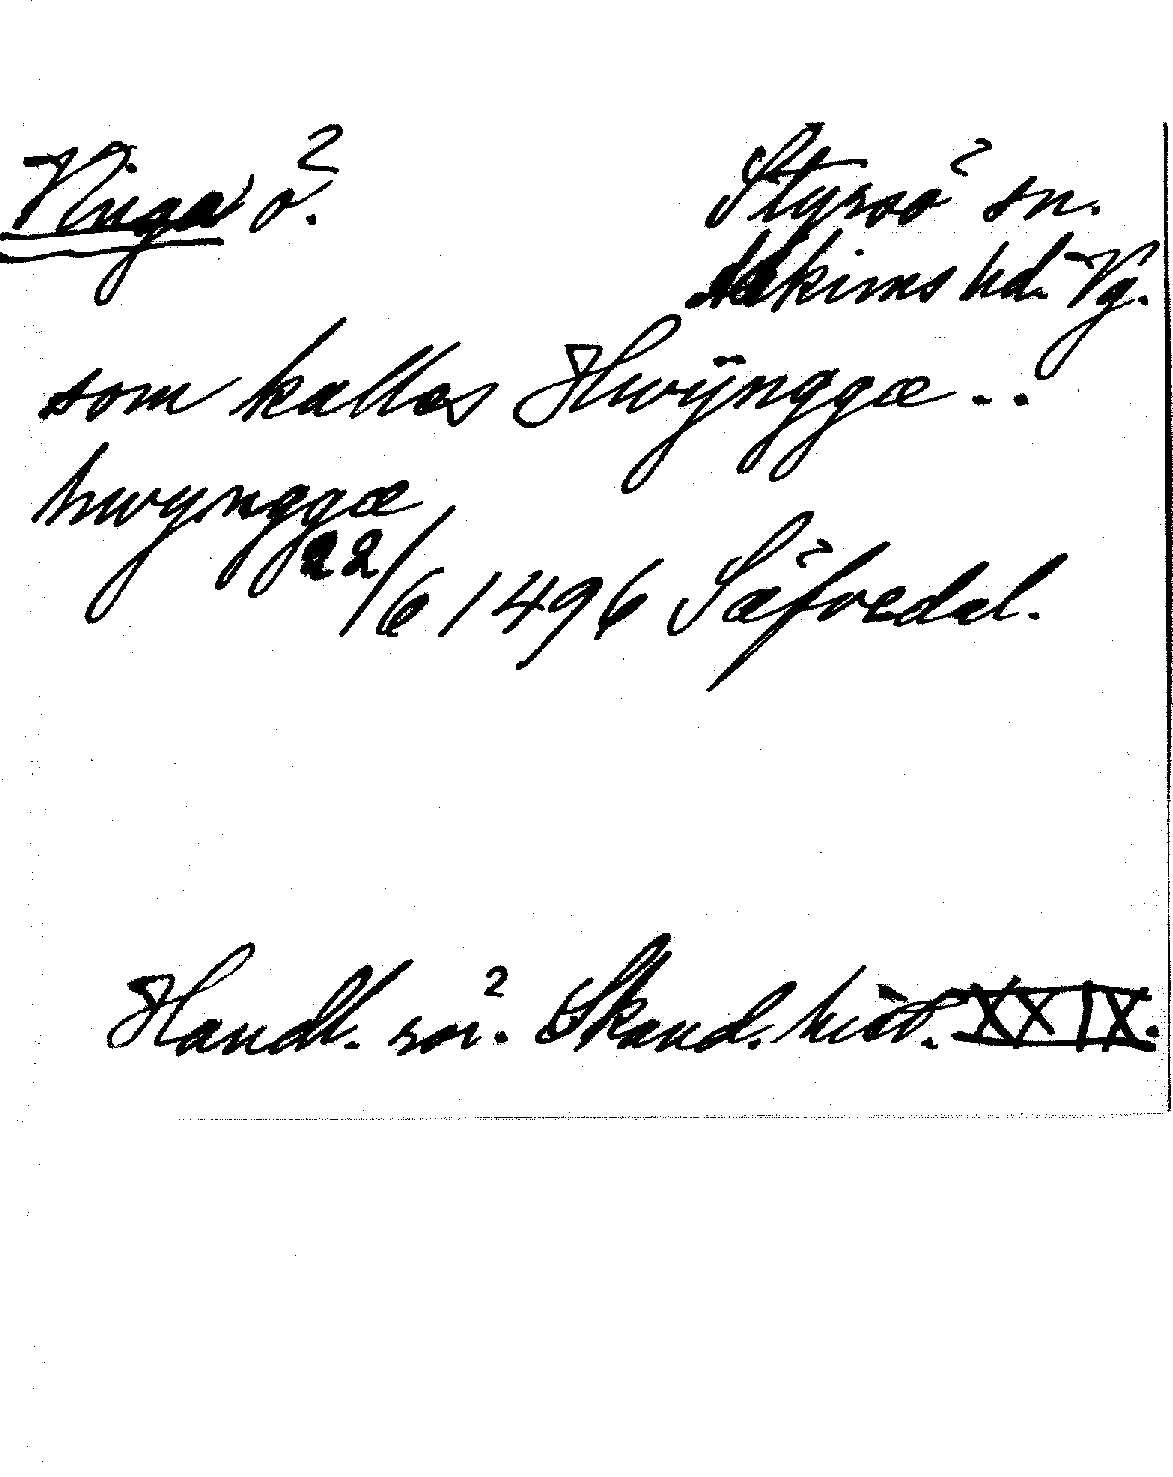 Vinga ö.
Styrsö sn.
Askims hd. Vg.
som kalles Hwÿnggæ ..
hwynggæ
22/6 1496 Säfvedal.
Handl. rör. Skand. hist. XXIX.